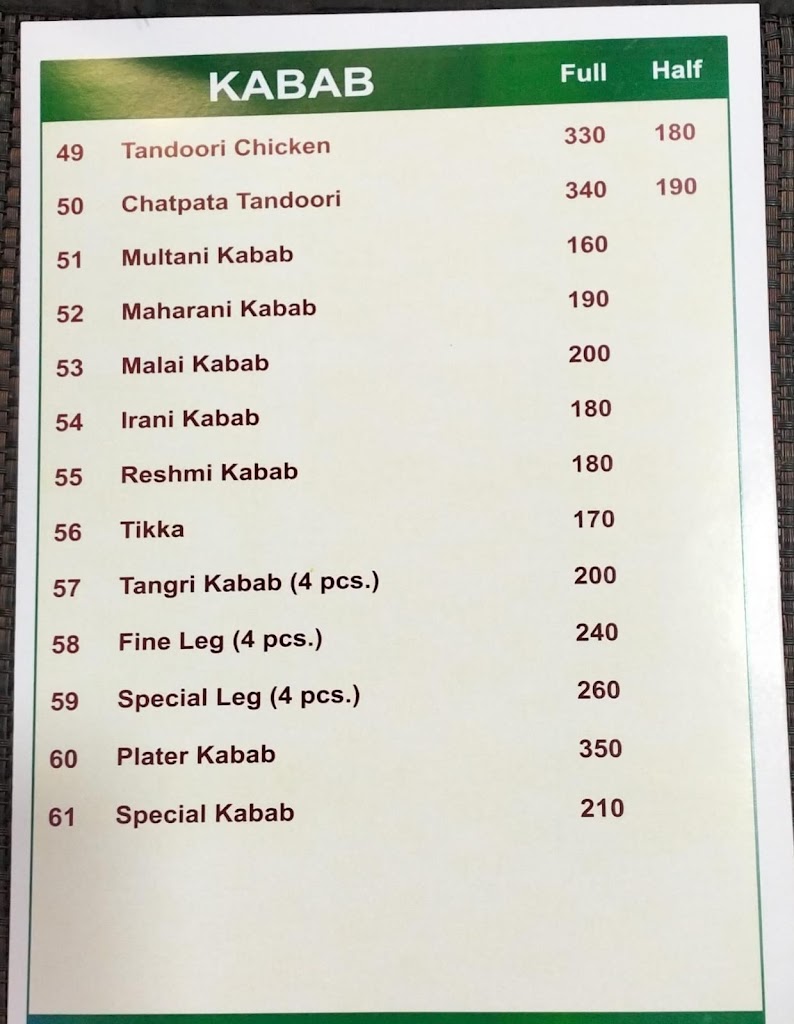 KABAB Full Half
49 Tandoori Chicken 330 180
50 Chatpata Tandoori 340 190
51 Multani Kabab 160
52 Maharani Kabab 190
53 Malai Kabab 200
54 Irani Kabab 180
55 Reshmi Kabab 180
56 Tikka 170
57 Tangri Kabab (4 pcs.) 200
58 Fine Leg (4 pcs.) 240
59 Special Leg (4 pcs.) 260
60 Plater Kabab 350
61 Special Kabab 210